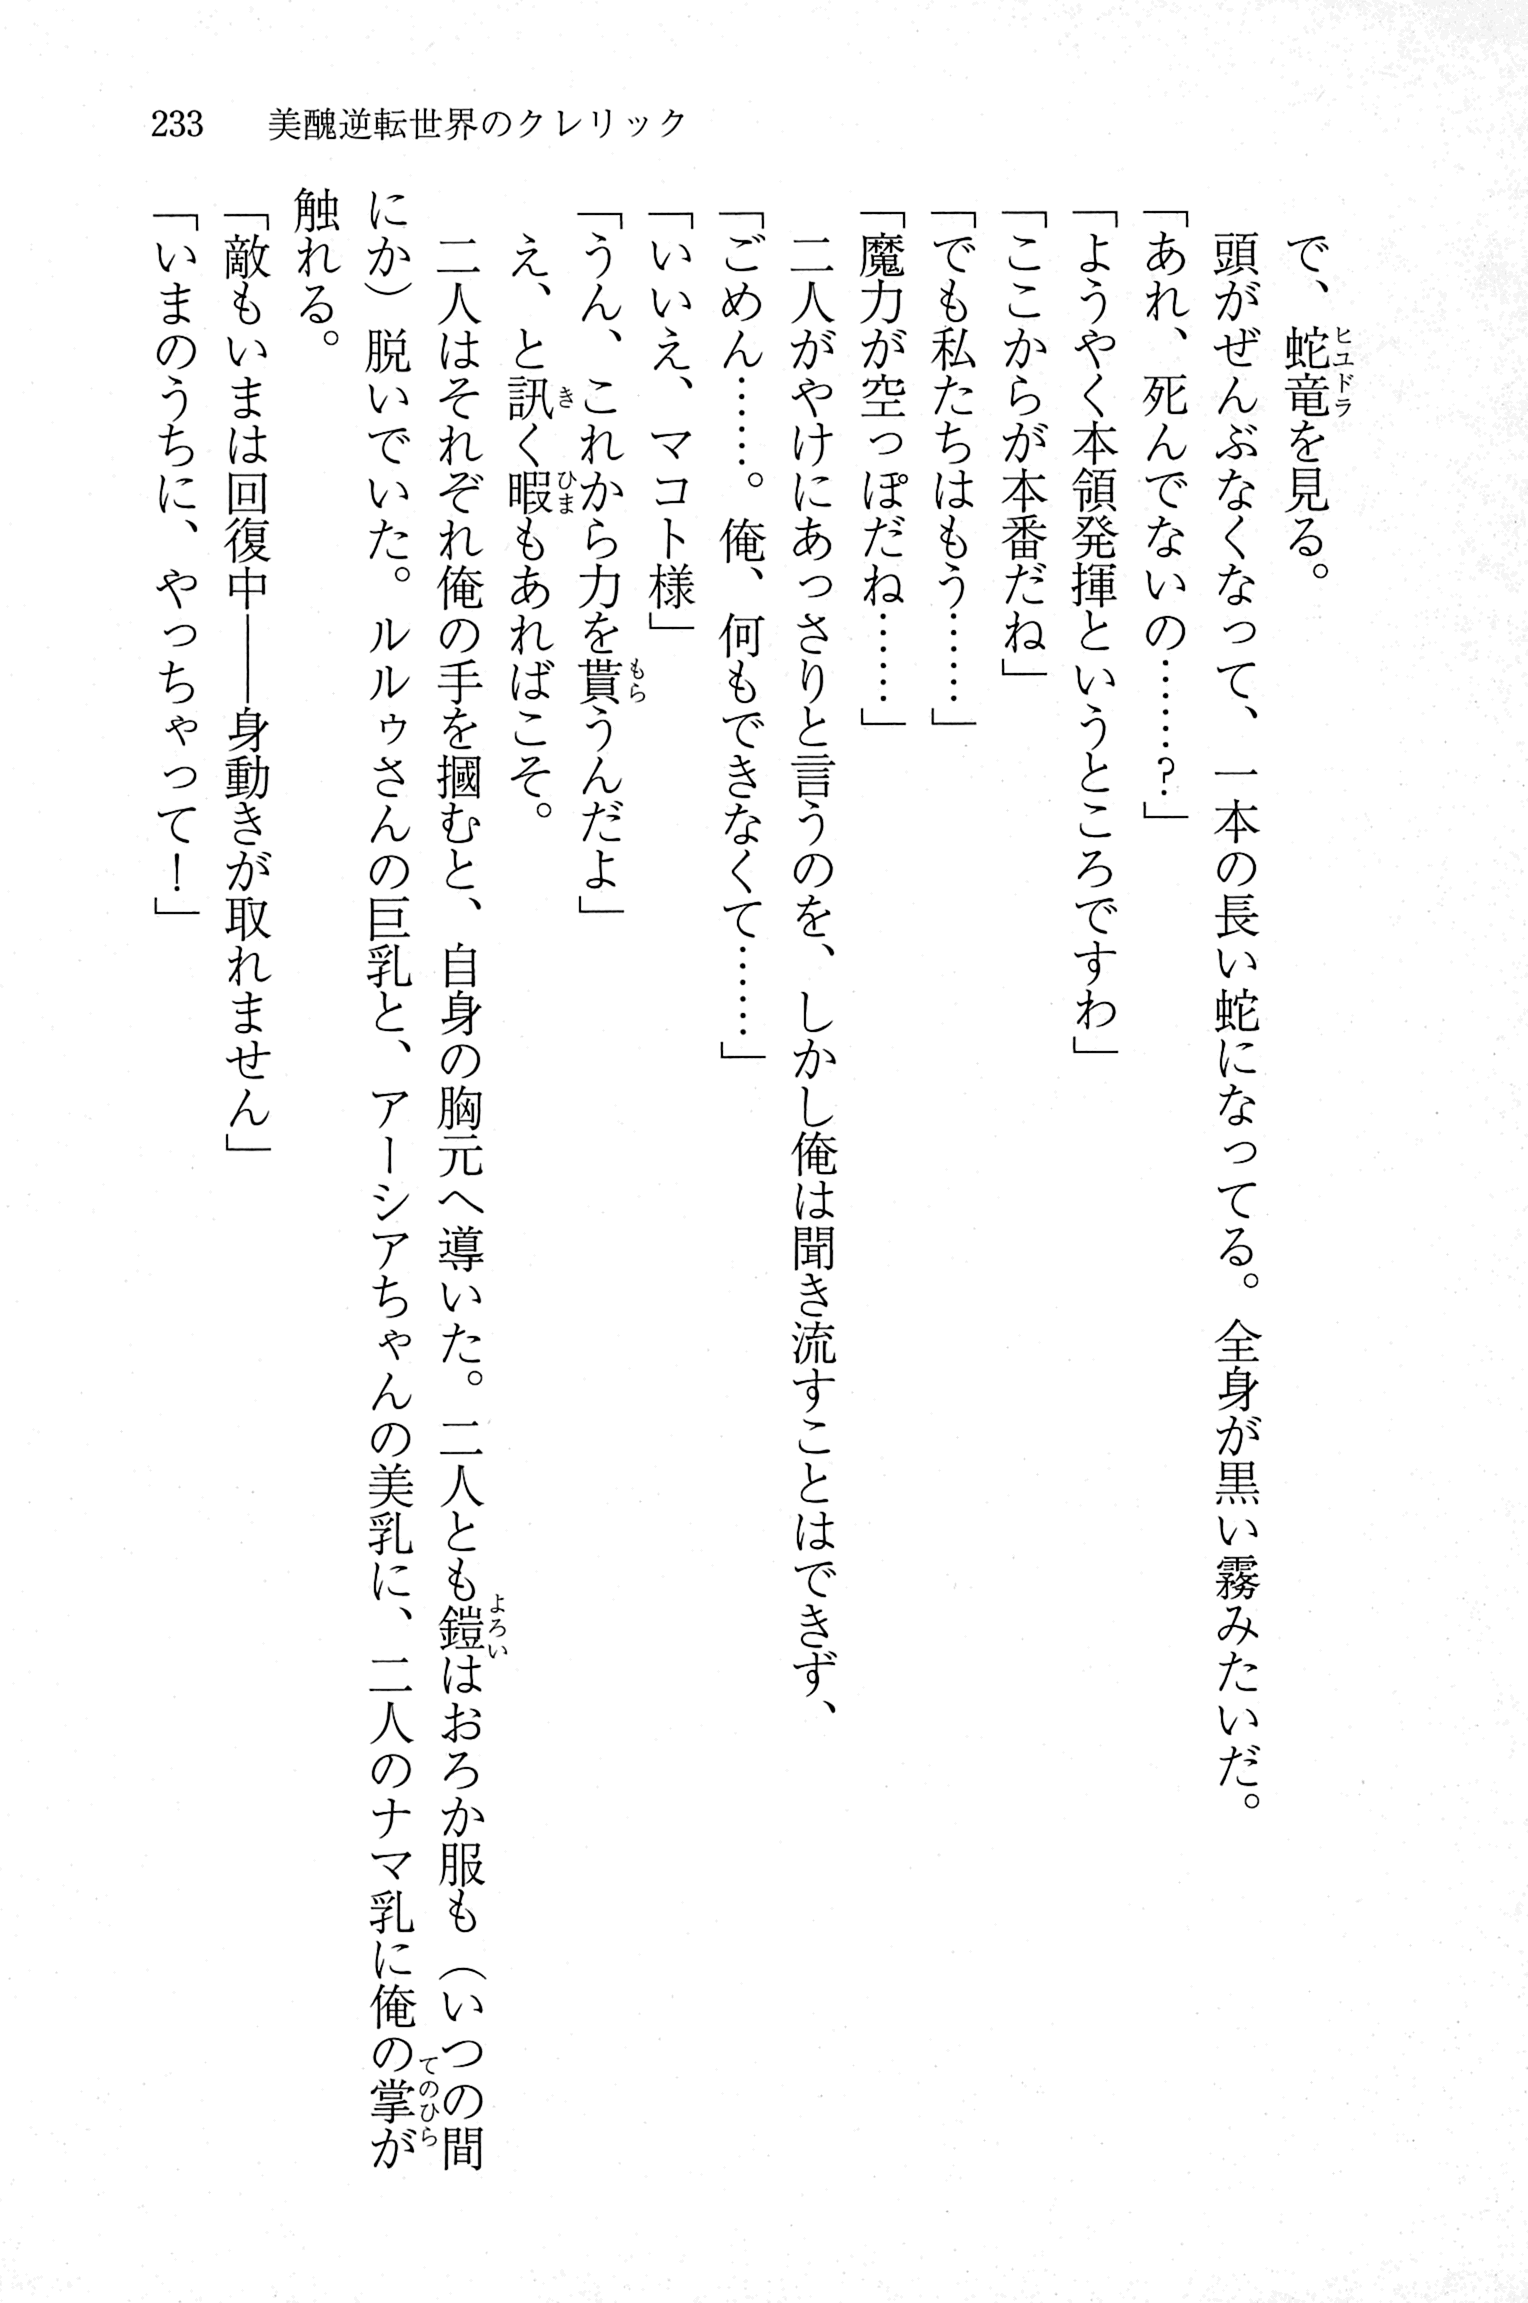 233　美醜逆転世界のクレリック
　で、蛇竜を見る。
　頭がぜんぶなくなって、一本の長い蛇になってる。全身が黒い霧みたいだ。
「あれ、死んでないの……？」
「ようやく本領発揮というところですわ」
「ここからが本番だね」
「でも私たちはもう……」
「魔力が空っぽだね……」
　二人がやけにあっさりと言うのを、しかし俺は聞き流すことはできず、
「ごめん……。俺、何もできなくて……」
「いいえ、マコト様」
「うん、これから力を貰うんだよ」
　え、と訊く暇もあればこそ。
　二人はそれぞれ俺の手を摑むと、自身の胸元へ導いた。二人とも鎧はおろか服も（いつの間
にか）脱いでいた。ルルゥさんの巨乳と、アーシアちゃんの美乳に、二人のナマ乳に俺の掌が
触れる。
「敵もいまは回復中――身動きが取れません」
「いまのうちに、やっちゃって！」
ヒユドラ
き
ひま
もら
よろい
てのひら